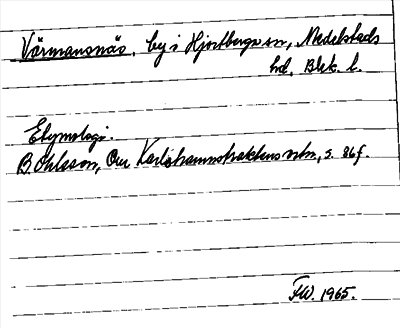 Värmansnäs, by i Hjortsberga sn, Medelstads
hd, Blek. l.
Etymologi.
B Ohlsson, Om Karlshamnstraktens ortn, s. 86 f.
FW. 1965.